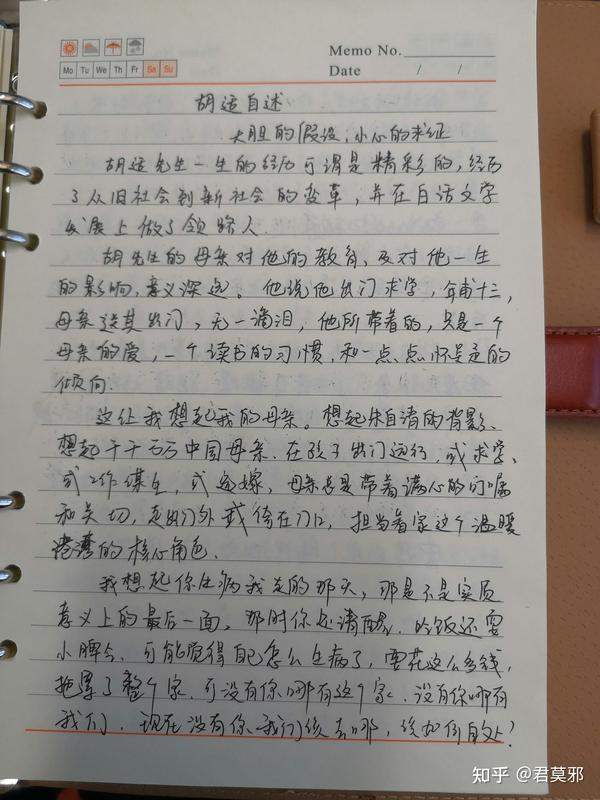 Memo No.
Mo Tu We Th Fr Sa Su
Date / /
胡适自述
大胆的假设,小心的求证
胡适先生一生的经历可谓是精彩的,经历
了从旧社会到新社会的变革,并在白话文学
发展上做了领路人.
胡先生的母亲对他的教育、及对他一生
的影响,意义深远。他说他出门求学,年甫十三,
母亲送其出门,无一滴泪,他所带着的,只是一个
母亲的爱,一个读书的习惯,和一点点怀疑的
倾向.
这让我想起我的母亲。想起朱自清的背影、
想起千千万万中国母亲.在孩子出门远行,或求学、
或工作谋生,或远嫁,母亲总是带着满心的叮嘱
和关切,走出门外或倚在门口,担当着家这个温暖
港湾的核心角色.
我想起你生病我走的那天,那是不是实质
意义上的最后一面,那时你还清醒.吃饭还要
小脾气.可能觉得自己怎么生病了,要花这么多钱,
拖累了整个家.可没有你哪有这个家.没有你哪有
我们.现在没有你.我们该去哪,该如何自处?
知乎 @君莫邪